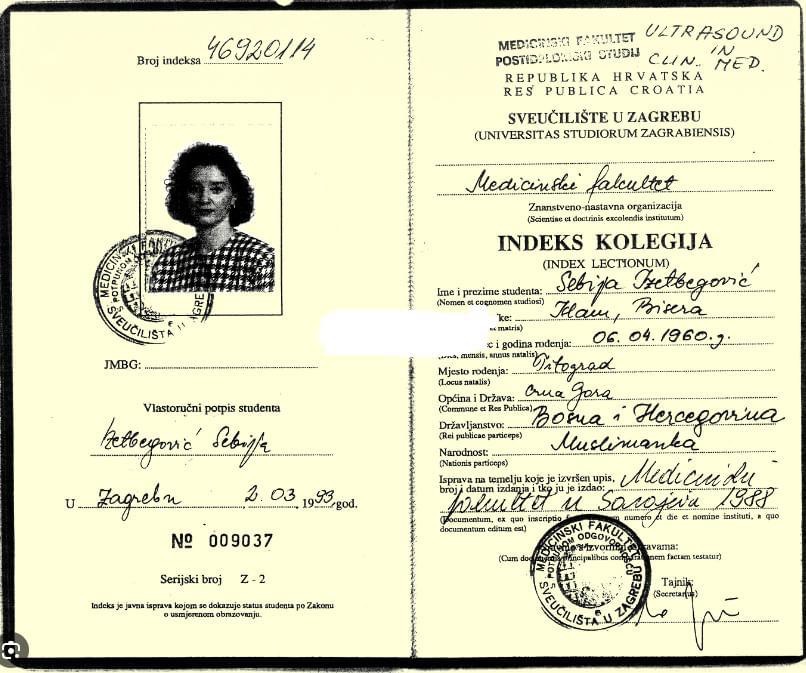 Broj indeksa 46920114
MEDICINSKI FAKULTET
SVEUČILIŠTA U ZAGREBU
JMBG:
Vlastoručni potpis studenta
Izetbegović Sebija
U Zagrebu 2.03. 1993, god.
№ 009037
Serijski broj Z - 2
Indeks je javna isprava kojom se dokazuje status studenta po Zakonu
o usmjerenom obrazovanju.
MEDICINSKI FAKULTET
POSTIDIPLOMSKI STUDIJ
ULTRASOUND
IN
CLIN. MED.
REPUBLIKA HRVATSKA
RES PUBLICA CROATIA
SVEUČILIŠTE U ZAGREBU
(UNIVERSITAS STUDIORUM ZAGRABIENSIS)
Medicinski fakultet
Znanstveno-nastavna organizacija
(Scientiae et doctrinis excolendis institutum)
INDEKS KOLEGIJA
(INDEX LECTIONUM)
Ime i prezime studenta: Sebija Izetbegović
(Nomen et cognomen studiosi)
ke: Bisera
et matris)
c i godina rođenja: 06. 04. 1960. g.
mensis, annus natalis)
Mjesto rođenja: Titograd
(Locus natalis)
Općina i Država: Crna Gora
(Commune et Res Publica)
Državljanstvo: Bosna i Hercegovina
(Rei publicae particeps)
Narodnost: Muslimanka
(Nationis particeps)
Isprava na temelju koje je izvršen upis,
broj i datum izdanja i tko ju je izdao: Medicinski
fakultet u Sarajevu 1988
(Documentum, ex quo inscriptio numero et die et nomine instituti, a quo
documentum editum est)
MEDICINSKI FAKULTET
POTPUNOM ODGOVORNOŠĆU
SVEUČILIŠTA U ZAGREBU
Tajnik:
(Secretarius)